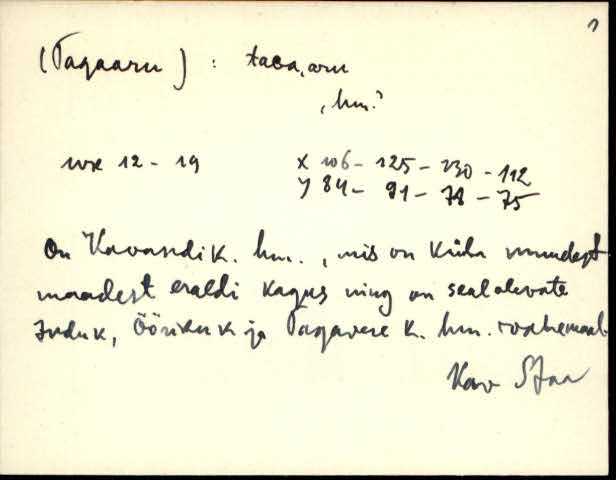 1
(Tagaaru) : taga,aru
, hm.?
wx 12 - 19 x 106 - 125 - 130 - 112
y 84 - 91 - 78 - 75
On Kavandi k. hm., mis on küla muudest
maadest eraldi kagus ning on sealolevate
Induk, Öörikuk ja Tagavere k. hm. vahemaal
Kav